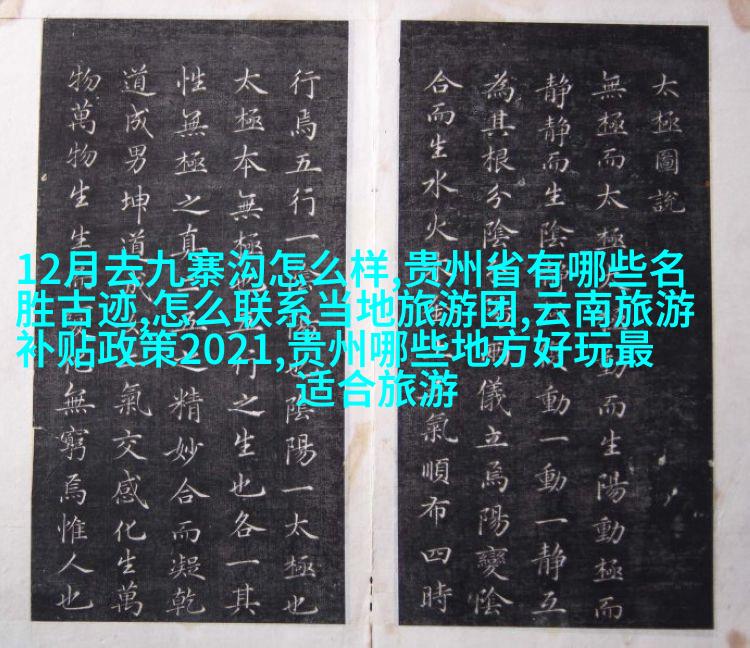 12月去九寨沟怎么样,贵州省有哪些名
胜古迹,怎么联系当地旅游团,云南旅游
补贴政策2021,贵州哪些地方好玩最
适合旅游
太極圖說
無極而太極動而生陽動極而
静静而生陰動一動一静互
為其根分陰儀立焉陽變陰
合而生水火氣順布四時
行焉五行一陰陽一太極也
太極本無極之生也各一其
性無極之真精妙合而凝乾
道成男坤道氣交感化生萬
物萬物生生無窮焉惟人也